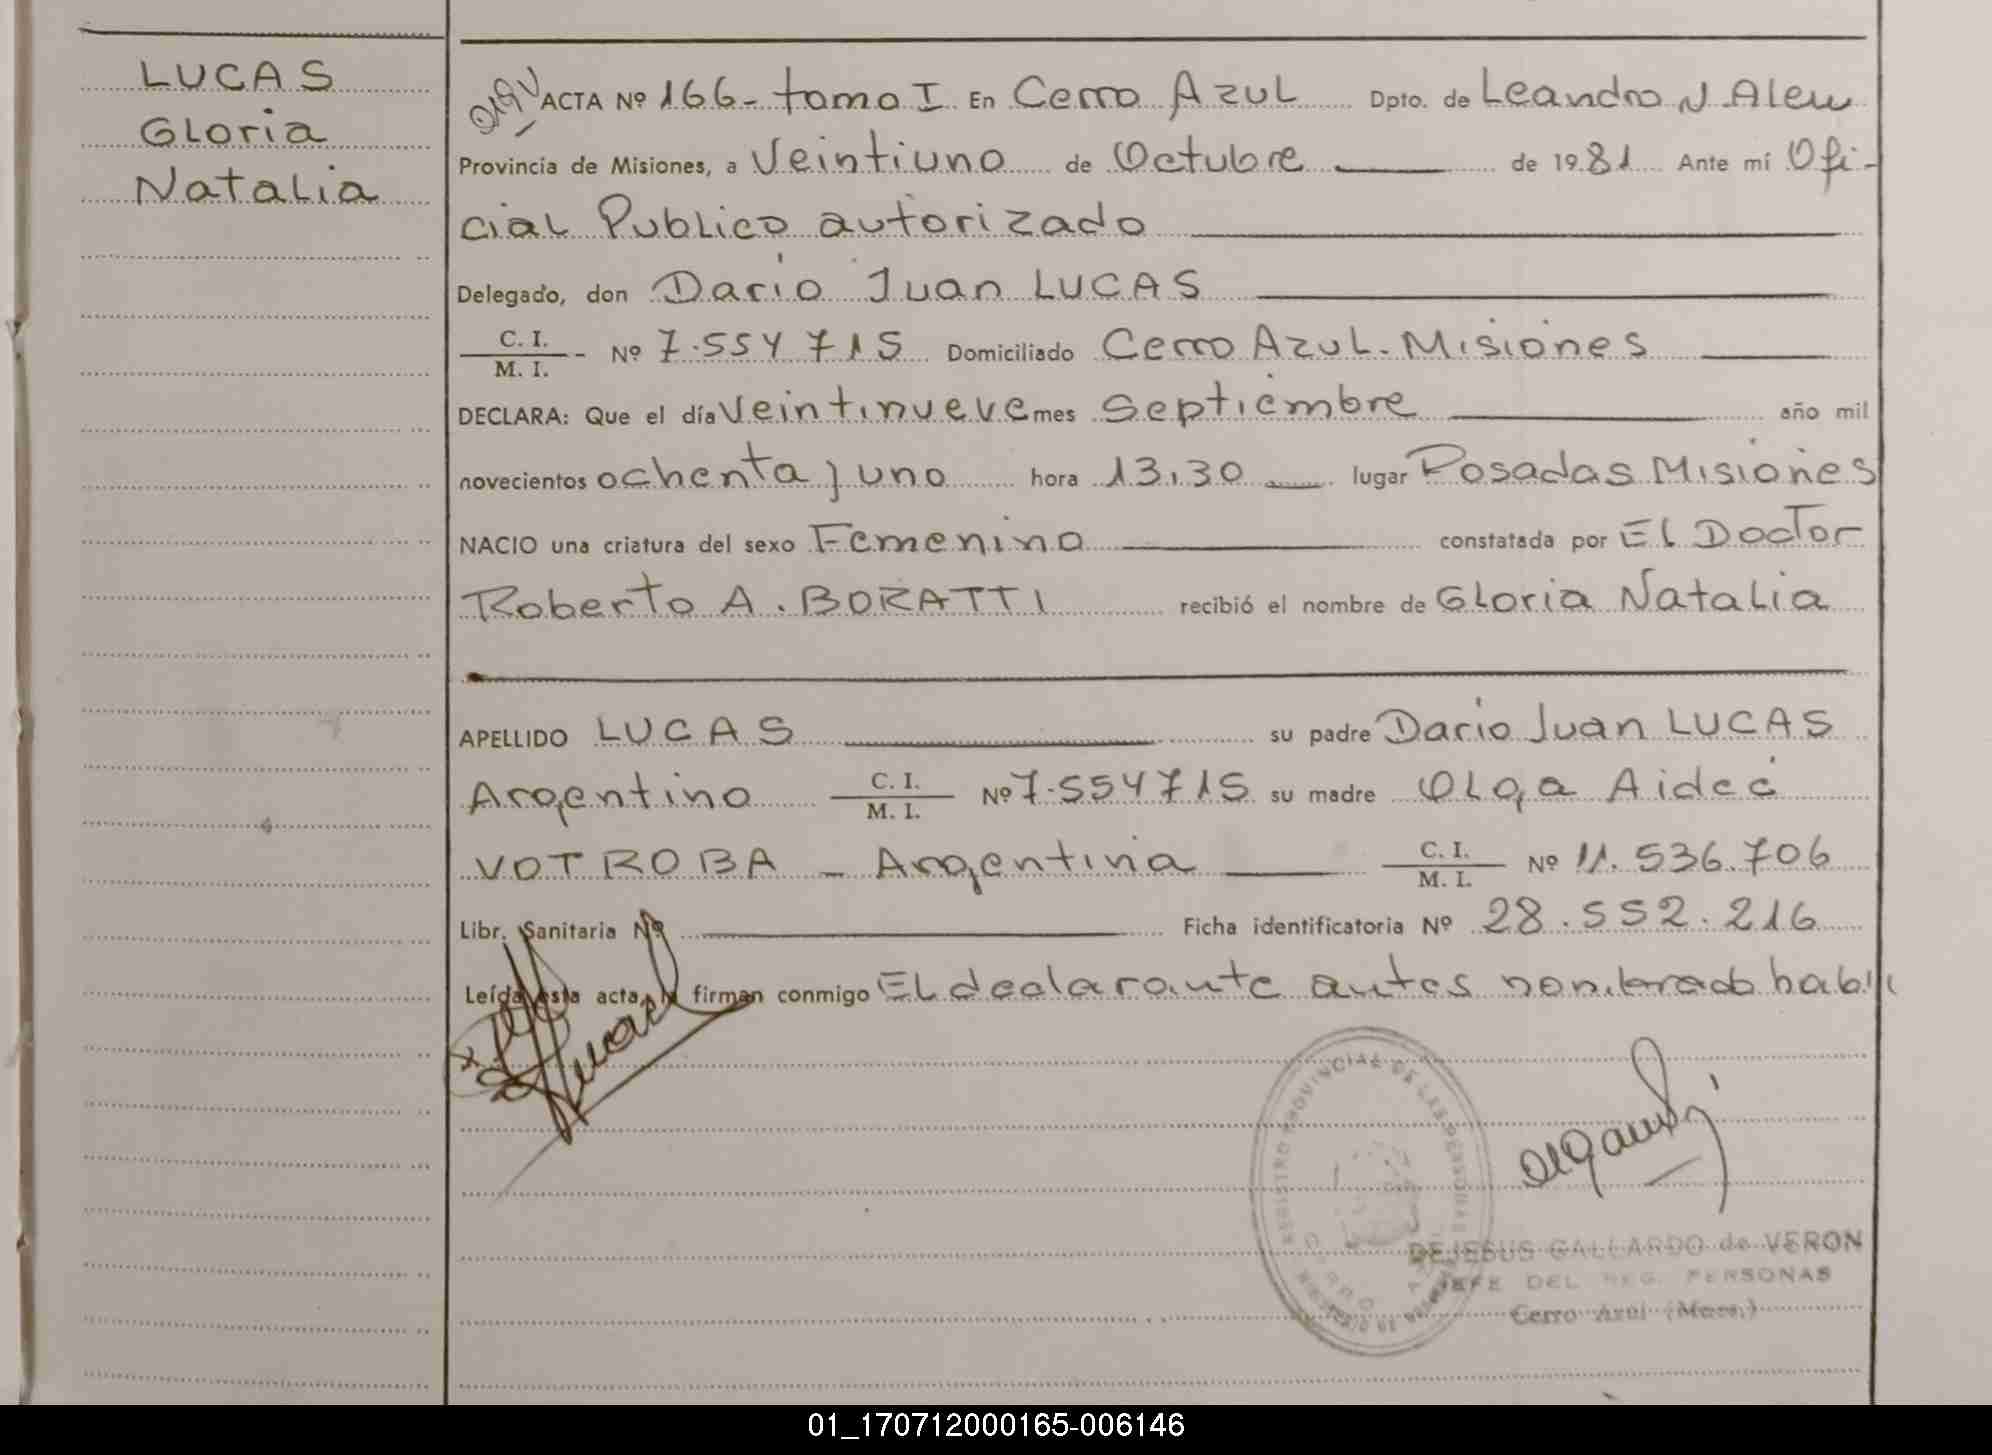 LUCAS
Gloria
Natalia
ACTA Nº 166- tomo I En Cerro Azul Dpto. de Leandro N. Alem
Provincia de Misiones, a Veintiuno de Octubre de 1981 Ante mí Ofi-
cial Publico autorizado
Delegado, don Dario Juan LUCAS
C. I.
M. I. - Nº 7.554715 Domiciliado Cerro Azul. Misiones
DECLARA: Que el día Veintinueve mes Septiembre año mil
novecientos ochenta y uno hora 13,30 lugar Posadas Misiones
NACIO una criatura del sexo Femenino constatada por El Doctor
Roberto A. BORATTI recibió el nombre de Gloria Natalia
APELLIDO LUCAS su padre Dario Juan LUCAS
Argentino C. I. M. I. Nº 7.554715 su madre Olga Aideé
VOTROBA - Argentina C. I. M. I. Nº 11.536.706
Libr. Sanitaria Nº Ficha identificatoria Nº 28.552.216
Leída esta acta, la firman conmigo El declarante antes nombrado habil
REGISTRO PROVINCIAL DE LAS PERSONAS
CERRO AZUL
DEJESUS GALLARDO de VERON
JEFE DEL REG. PERSONAS
Cerro Azul (Mnes.)
01_170712000165-006146